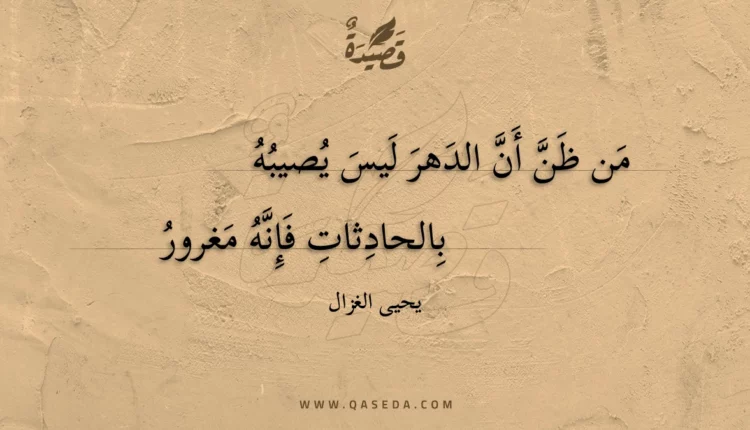 قَصِيدَةٌ
مَن ظَنَّ أَنَّ الدَهرَ لَيسَ يُصيبُهُ
بِالحادِثاتِ فَإِنَّهُ مَغرورُ
يحيى الغزال
WWW.QASEDA.COM